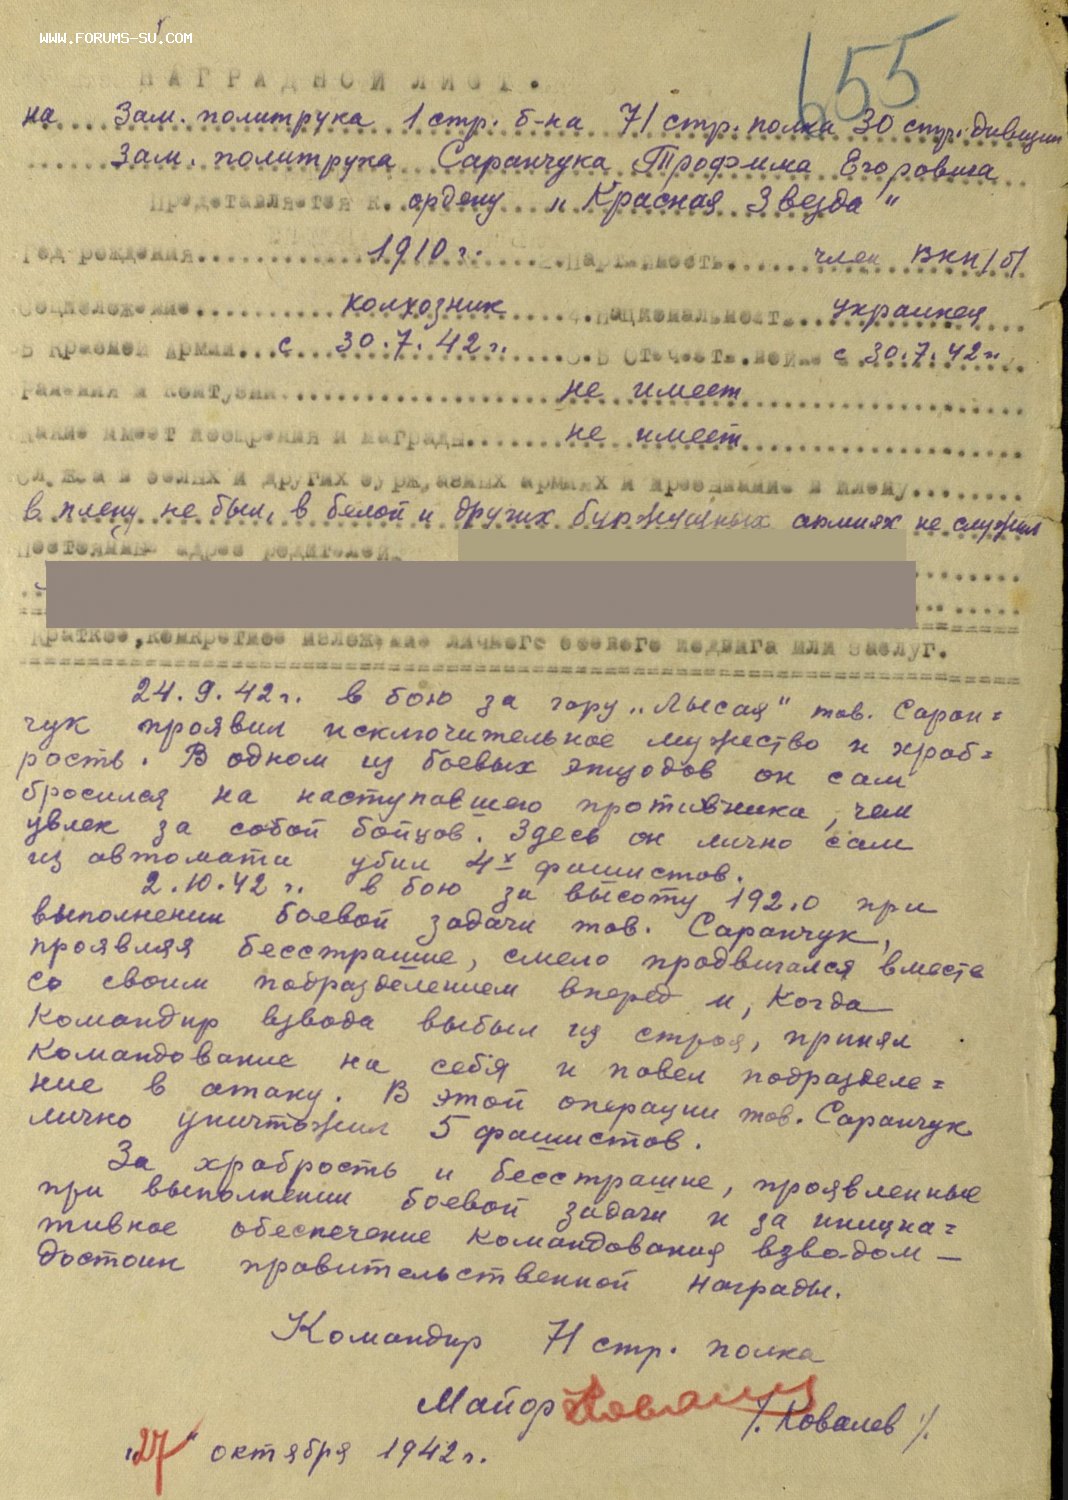 WWW.FORUMS-SU.COM
655
НАГРАДНОЙ ЛИСТ.
на Зам. политрука 1 стр. б-на 71 стр. полка 30 стр. дивизии
Зам. политрука Саранчука Трофима Егоровича
Представляется к. ордену „Красная Звезда"
Год рождения 1910 г. 2. Партийность член ВКП/б/
Соцположение колхозник 4. Национальност. украинец
В Красной Армии с 30.7.42 г. В Отечеств. войне с 30.7.42 г.
ранения и контузии не имеет
Какие имеет поощрения и награды не имеет
Служба в белых и других буржуазных армиях и пребывание в плену
в плену не был, в белой и других буржуазных армиях не служил
Постоянный адрес родителей
Краткое, конкретное изложение личного боевого подвига или заслуг.
24.9.42 г. в бою за гору „Лысая" тов. Саран=
чук проявил исключительное мужество и храб=
рость. В одном из боевых эпизодов он сам
бросился на наступавшего противника, чем
увлек за собой бойцов. Здесь он лично сам
из автомата убил 4х фашистов.
2.10.42 г. в бою за высоту 192.0 при
выполнении боевой задачи тов. Саранчук,
проявляя бесстрашие, смело продвигался вместе
со своим подразделением вперед и, когда
командир взвода выбыл из строя, принял
командование на себя и повел подразделе=
ние в атаку. В этой операции тов. Саранчук
лично уничтожил 5 фашистов.
За храбрость и бесстрашие, проявленные
при выполнении боевой задачи и за инициа=
тивное обеспечение командования взводом —
достоин правительственной награды.
Командир 71 стр. полка
Майор Ковалев /. Ковалев /.
„27" октября 1942 г.